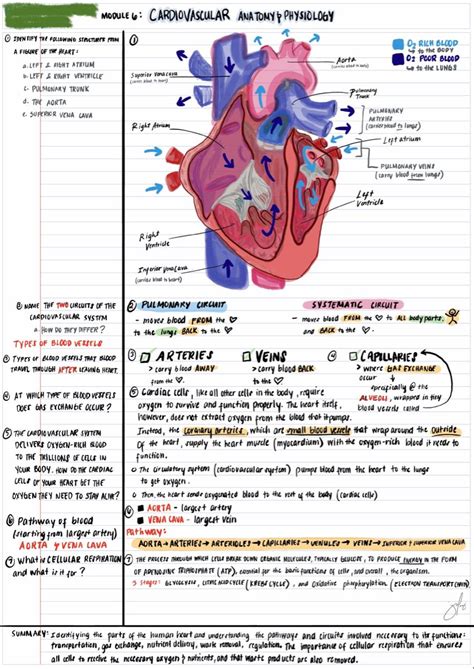 MODULE 6: CARDIOVASCULAR ANATOMY & PHYSIOLOGY
① IDENTIFY THE FOLLOWING STRUCTURES FROM
A FIGURE OF THE HEART:
a. LEFT & RIGHT ATRIUM
b. LEFT & RIGHT VENTRICLE
c. PULMONARY TRUNK
d. THE AORTA
e. SUPERIOR VENA CAVA
①
O2 RICH BLOOD
↳ to the BODY
O2 POOR BLOOD
↳ to the LUNGS
Aorta
(carries blood to body)
Superior vena cava
(carries blood to heart)
Pulmonary
Trunk
PULMONARY
ARTERIES
(carries blood to lungs)
Right Atrium
Left atrium
PULMONARY VEINS
(carry blood from lungs)
Left
Ventricle
Right
Ventricle
Inferior vena cava
(carries blood to heart)
② NAME THE TWO CIRCUITS OF THE
CARDIOVASCULAR SYSTEM
a. HOW DO THEY DIFFER?
TYPES OF BLOOD VESSELS
② PULMONARY CIRCUIT
- moves blood FROM the ♡
to the lungs BACK to the ♡
SYSTEMATIC CIRCUIT
- moves blood FROM the ♡ to ALL body parts,
and BACK to the ♡.
③ TYPES OF BLOOD VESSELS THAT BLOOD
TRAVEL THROUGH AFTER LEAVING HEART.
③ ARTERIES
> carry blood AWAY
from the ♡
VEINS
> carry blood BACK
to the ♡
④ CAPILLARIES
> where GAS EXCHANGE
occur
↳ specifically @ the
ALVEOLI, wrapped in tiny
blood vessels called
④ AT WHICH TYPE OF BLOOD VESSELS
DOES GAS EXCHANGE OCCUR?
⑤ THE CARDIOVASCULAR SYSTEM
DELIVERS OXYGEN-RICH BLOOD
TO THE TRILLIONS OF CELLS IN
YOUR BODY. HOW DO THE CARDIAC
CELLS OF YOUR HEART GET THE
OXYGEN THEY NEED TO STAY ALIVE?
⑤ Cardiac cells, like all other cells in the body, require
oxygen to survive and function properly. The heart itself,
however, does not extract oxygen from the blood that it pumps.
Instead, the coronary arteries, which are small blood vessels that wrap around the outside
of the heart, supply the heart muscle (myocardium) with the oxygen-rich blood it needs to
function.
○ The circulatory system (cardiovascular system) pumps blood from the heart to the lungs
to get oxygen.
○ Then, the heart sends oxygenated blood to the rest of the body (cardiac cells)
⑥ Pathway of blood
(starting from largest artery)
AORTA & VENA CAVA
⑥ AORTA - largest artery
VENA CAVA - largest vein
Pathway:
AORTA → ARTERIES → ARTERIOLES → CAPILLARIES → VENULES → VEINS → INFERIOR & SUPERIOR VENA CAVA
⑦ WHAT IS CELLULAR RESPIRATION
and what is it for?
⑦ THE PROCESS THROUGH WHICH CELLS BREAK DOWN ORGANIC MOLECULES, TYPICALLY GLUCOSE, TO PRODUCE ENERGY IN THE FORM
OF ADENOSINE TRIPHOSPHATE (ATP), essential for the basic functions of cells, and overall, the organism.
3 stages: GLYCOLYSIS, CITRIC ACID CYCLE (KREBS CYCLE), and Oxidative phosphorylation (ELECTRON TRANSPORT CHAIN)
SUMMARY: Identifying the parts of the human heart and understanding the pathways and circuits involved necessary to its functions:
transportation, gas exchange, nutrient delivery, work removal, regulation. The importance of cellular respiration that ensures
all cells to receive the necessary oxygen & nutrients, and that waste products are also removed.